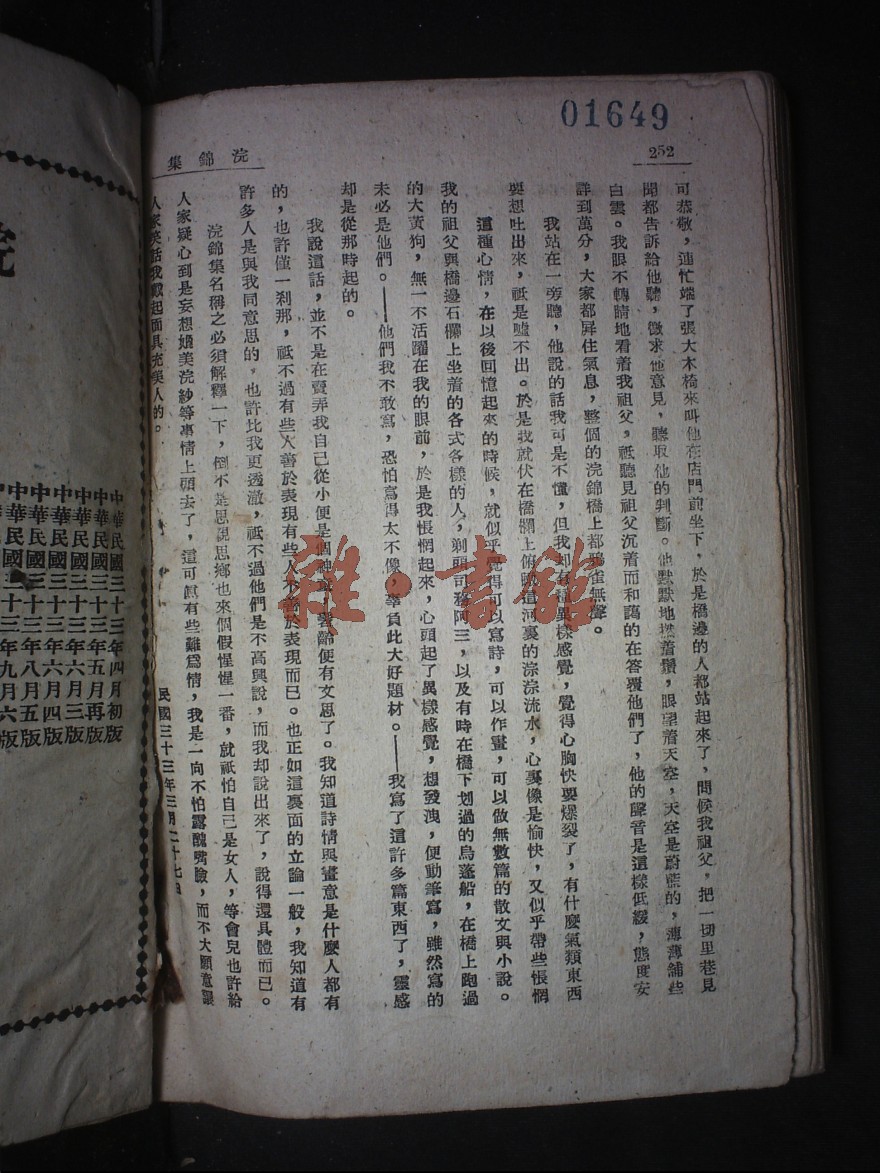 01649
252
浣錦集
可恭敬，連忙端了張大木椅來叫他在店門前坐下，於是橋邊的人都站起來了，問候我祖父，把一切里巷見
聞都告訴給他聽，徵求他意見，聽取他的判斷。他默默地撚着鬚，眼望着天空，天空是蔚藍的，薄薄舖些
白雲。我眼不轉睛地看着我祖父，祗聽見祖父沉着而和藹的在答覆他們了，他的聲音是這樣低緩，態度安
詳到萬分，大家都屏住氣息，整個的浣錦橋上都鴉雀無聲。
我站在一旁聽，他說的話我可是不懂，但我却有種異樣感覺，覺得心胸快要爆裂了，有什麼氣類東西
要想吐出來，祗是噓不出。於是我就伏在橋欄上俯視這河裏的淙淙流水，心裏像是愉快，又似乎帶些悵惘
這種心情，在以後回憶起來的時候，就似乎覺得可以寫詩，可以作畫，可以做無數篇的散文與小說。
我的祖父與橋邊石欄上坐着的各式各樣的人，剃頭司務阿三，以及有時在橋下划過的烏蓬船，在橋上跑過
的大黃狗，無一不活躍在我的眼前，於是我悵惘起來，心頭起了異樣感覺，想發洩，便動筆寫，雖然寫的
未必是他們。——他們我不敢寫，恐怕寫得太不像，辜負此大好題材。——我寫了這許多篇東西了，靈感
却是從那時起的。
我說這話，並不是在賣弄我自己從小便是個神童，髫齡便有文思了。我知道詩情與畫意是什麼人都有
的，也許僅一刹那，祗不過有些人善於表現有些人不善於表現而已。也正如這裏面的立論一般，我知道有
許多人是與我同意思的，也許比我更透澈，祗不過他們是不高興說，而我却說出來了，說得還具體而已。
浣錦集名稱之必須解釋一下，倒不是思親思鄉也來個假惺惺一番，就祗怕自己是女人，等會兒也許給
人家疑心到是妄想媲美浣紗等事情上頭去了，這可眞有些難爲情，我是一向不怕露醜嘴臉，而不大願意讓
人家笑話我戴起面具充美人的。
民國三十三年三月二十七日
中華民國三十三年四月初版
中華民國三十三年五月再版
中華民國三十三年六月三版
中華民國三十三年六月四版
中華民國三十三年八月五版
中華民國三十三年九月六版
雜·書館